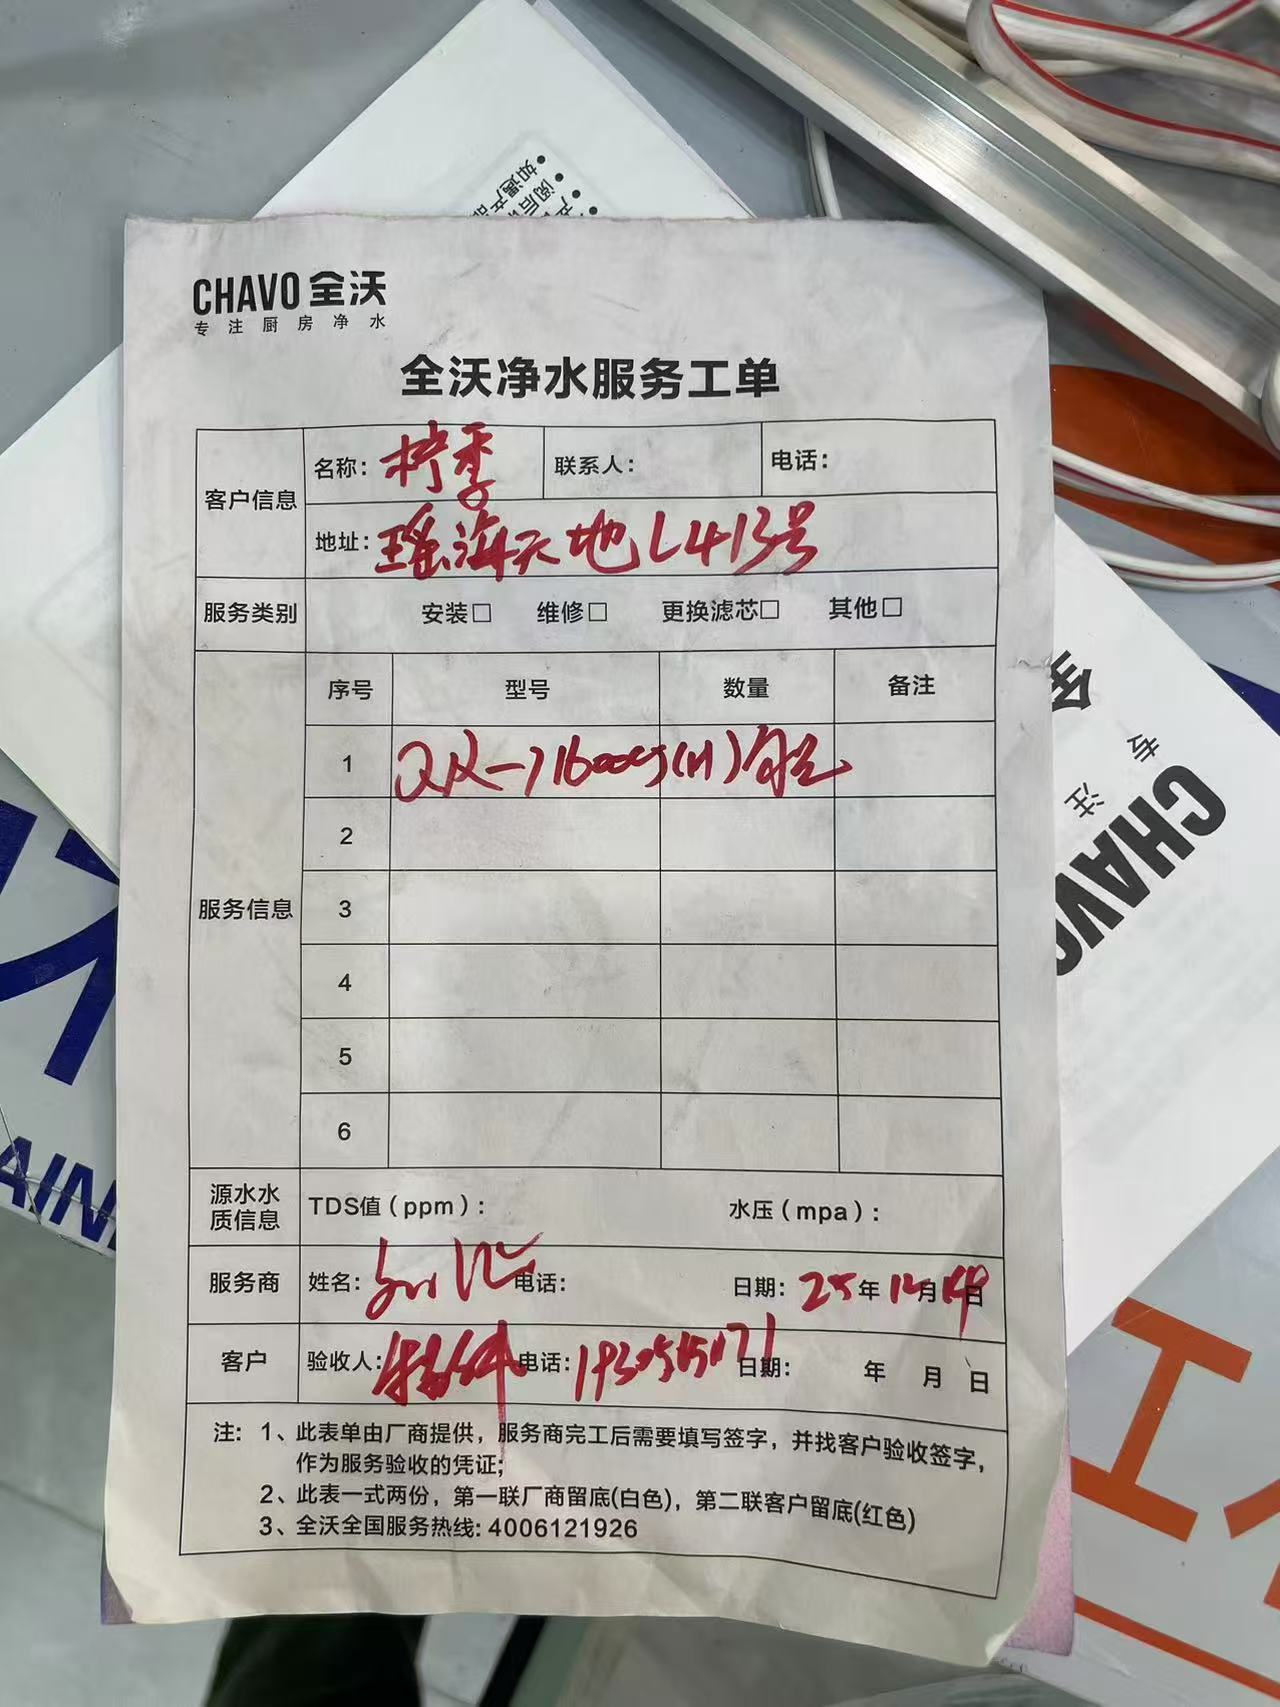 如遇产品
阅后
产
CHAVO 全沃
专注厨房净水
全沃净水服务工单
客户信息
名称：柠季 联系人： 电话：
地址：瑶海天地L413号
服务类别 安装□ 维修□ 更换滤芯□ 其他□
服务信息
序号 型号 数量 备注
1
2
3
4
5
6
源水水质信息 TDS值（ppm）： 水压（mpa）：
服务商 姓名： 电话： 日期：25年12月14日
客户 验收人： 电话： 日期： 年 月 日
注：1、此表单由厂商提供，服务商完工后需要填写签字，并找客户验收签字，
作为服务验收的凭证；
2、此表一式两份，第一联厂商留底(白色)，第二联客户留底(红色)
3、全沃全国服务热线：4006121926
全
专注
CHAVO
AIN
工